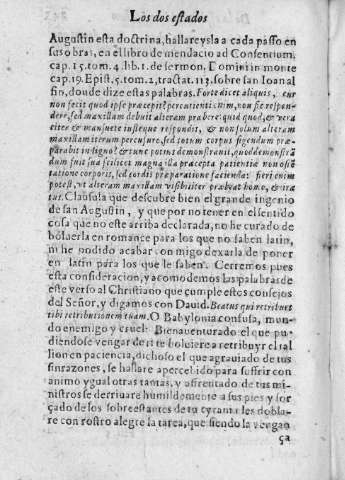 Los dos estados
Augustin esta doctrina, hallareysla a cada passo en
sus obras, en el libro de mendacio ad Consentium,
cap. 15. tom. 4. lib. 1. de sermon. Domini in monte
cap. 19. Epist. 5. tom. 2, tractat. 113. sobre san Ioan al
fin, donde dize estas palabras. Forte dicet aliquis, cur
non fecit quod ipse præcepit? percutienti enim, non sic respon-
dere, sed maxillam debuit alteram præbere: quid quod, & vera
citer & mansuete iusteque respondit, & non solum alteram
maxillam iterum percusuro, sed totum corpus figendum præ-
parabit in ligno? & tunc potens demonstrauit, quod demonstrã
dum fuit sua scilicet magna illa præcepta patientiæ non ostẽ
tatione corporis, sed cordis præparatione facienda: fieri enim
potest, vt alteram maxillam visibiliter præbeat homo, & ira
tus. Clausula que descubre bien el grande ingenio
de san Augustin, y que por no tener en el sentido
cosa que no este arriba declarada, no he curado de
boluerla en romance para los que no saben latin,
ni he podido acabar conmigo dexarla de poner
en latin para los que le saben. Cerremos pues
esta consideracion, y acomodemos las palabras de
este verso al Christiano que cumple estos consejos
del Señor, y digamos con Dauid. Beatus qui retribuet
tibi retributionem tuam. O Babylonia confusa, mun-
do enemigo y cruel: Bienauenturado el que pu-
diendose vengar de ti te boluiere a retribuyr el tal
lion en paciencia, dichoso el que agrauiado de tus
sinrazones, se hallare apercebido para suffrir con
animo ygual otras tantas, y affrentado de tus mi-
nistros se derriuare humildemente a sus pies y for
çado de los sobreestantes de tu tyrania les dobla-
re con rostro alegre la tarea, que siendo la vengan
ça